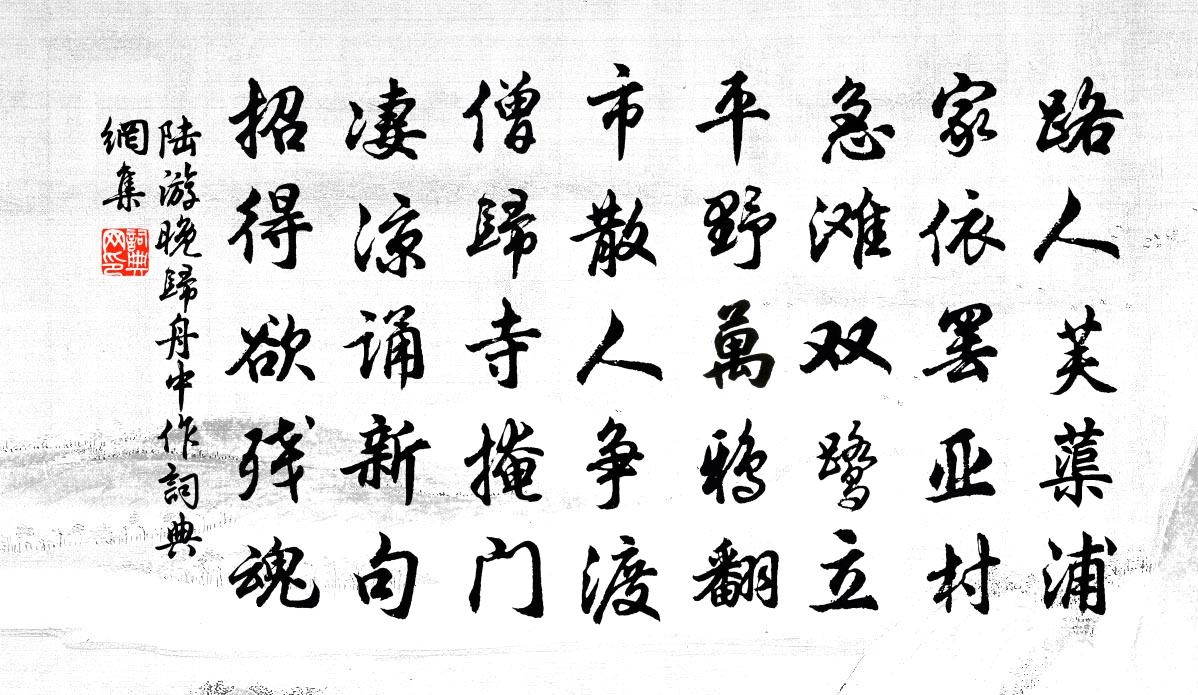 路人芙蕖浦
家依罢亚村
急滩双鹭立
平野萬鸦翻
市散人争渡
僧歸寺掩门
凄凉诵新句
招得欲残魂
陆游晚歸舟中作詞典
網集
詞典
网印